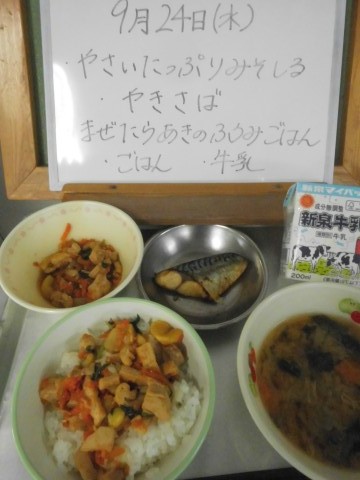 9月24日(木)
・やさいたっぷりみそしる
・やきさば
まぜたらあきのふうみごはん
・ごはん ・牛乳
成分無調整
新泉牛乳
200ml